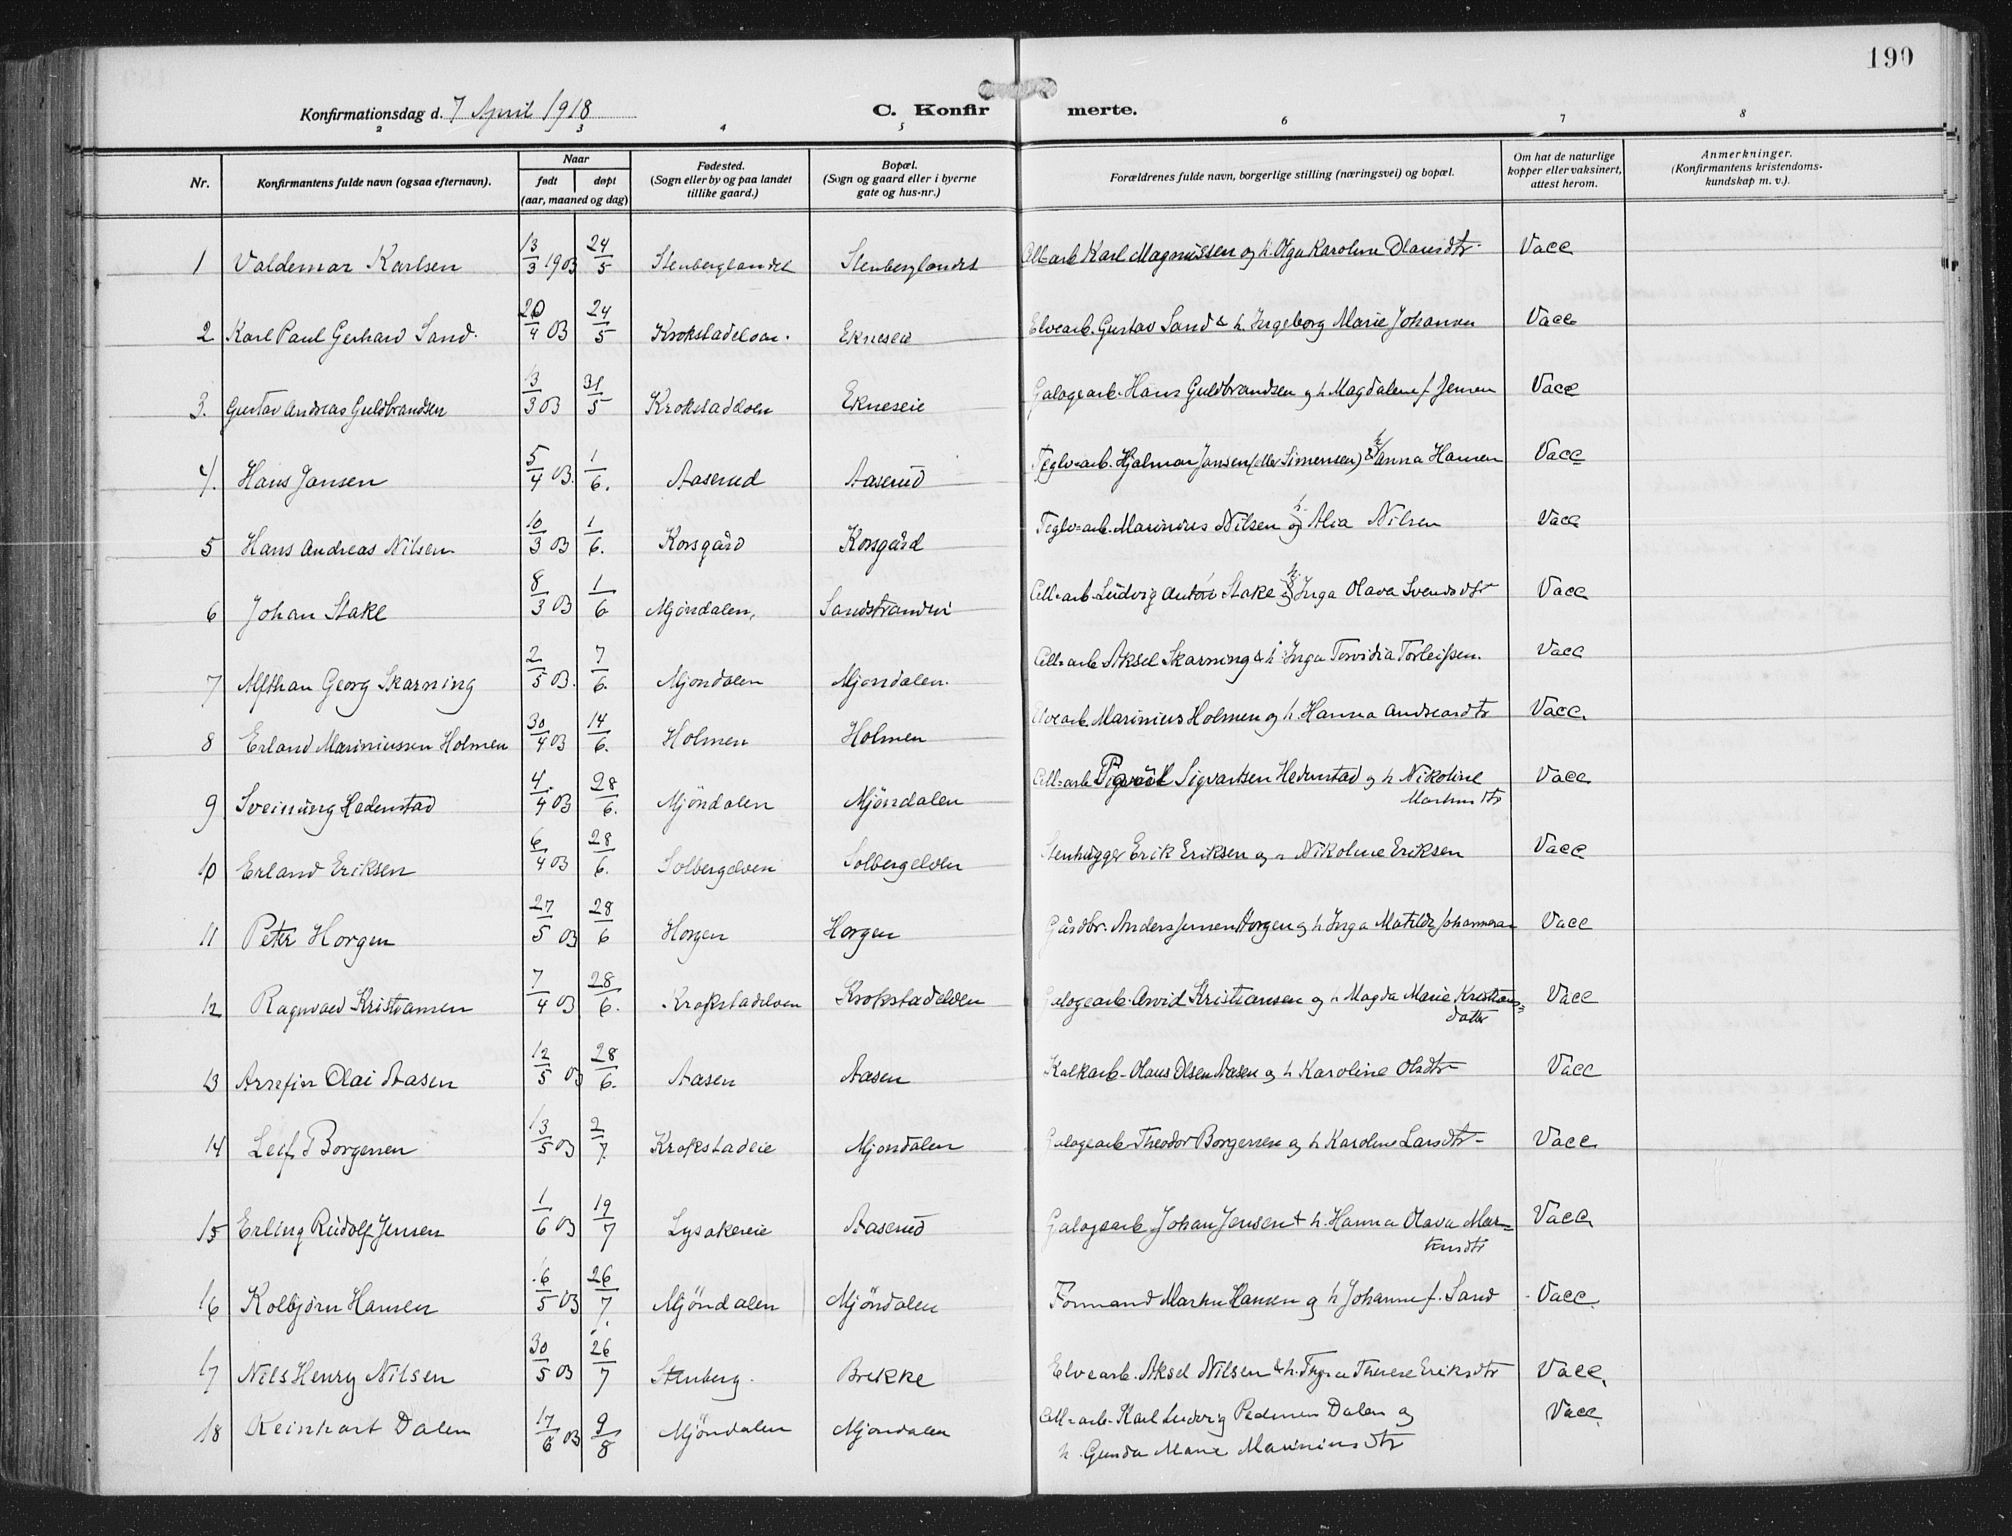 190
Konfirmationsdag d. 7 April 1918
C. Konfirmerte.
2 3 4 5 6 7 8
Nr.
Konfirmantens fulde navn (ogsaa efternavn).
Naar
født døpt
(aar, maaned og dag)
Fødested.
(Sogn eller by og paa landet
tillike gaard.)
Bopæl.
(Sogn og gaard eller i byerne
gate og hus-nr.)
Forældrenes fulde navn, borgerlige stilling (næringsvei) og bopæl.
Om hat de naturlige
kopper eller vaksinert,
attest herom.
Anmerkninger.
(Konfirmantens kristendoms-
kundskap m. v.).
1 Valdemar Karlsen 13/3 1903 24/5 Stenberglandet Stenberglandet Cell=arb Karl Magnussen og h. Olga Karoline Olausdtr Vacc
2 Karl Paul Gerhard Sand. 20/4 03 24/5 Krokstadelven. Ekneseie Elvearb. Gustav Sand & h. Ingeborg Marie Johansen Vacc
3. Gustav Andreas Guldbrandsen 13/3 03 31/5 Krokstadelven Ekneseie Galogearb. Hans Guldbrandsen og h Magdalene f. Jensen Vacc
4. Hans Jansen 5/4 03. 1/6. Aaserud Aaserud Teglv=arb. Hjalmar Jansen (eller Simensen) & h Anna Hansen Vacc
5 Hans Andreas Nilsen 10/3 03 1/6. Korsgård Korsgård Teglv=arb. Marinius Nilsen og h. Alia Nilsen Vacc
6 Johan Stake 8/3 03 1/6 Mjöndalen, Sandstranden Cell=arb Ludvig Anton Stake og h. Inga Olava Svendsdtr Vacc
7 Alfhan Georg Skarning 2/5 03. 7/6. Mjöndalen Mjöndalen. Cell=arb Aksel Skarning & h. Inga Torvidia Torleifsen. Vacc
8 Erland Mariniussen Holmen 30/4 03 14/6. Holmen Holmen Elvearb. Marinius Holmen og h. Hanna Andreasdtr Vacc.
9 Sveinung Hedenstad 4/4 03 28/6. Mjöndalen Mjöndalen Cell=arb Sigvartsen Hedenstad og h Nikoline
Martinsdtr Vacc
10 Erland Eriksen 6/4 03 28/6. Solbergelven Solbergelven Stenhugger Erik Eriksen og h Nikoline Eriksen Vacc
11 Peter Horgen 27/5 03 28/6 Horgen Horgen Gårdbr. Anders Jensen Horgen og h Inga Matilde Johannesen Vacc
12 Ragnvald Kristiansen 7/4 03 28/6. Krokstadelven Krokstadelven Galogearb. Arvid Kristiansen og h Magda Marie Kristians=
datter Vacc
13 Arnefin Olai Aasen 12/5 03 28/6. Aasen Aasen Kalkarb. Olaus Olsen Aasen og h Karoline Olsdtr Vacc
14 Leif Borgersen 13/5 03 2/7. Krokstadeie Mjöndalen Galogearb Theodor Borgersen og h Karoline Larsdtr Vacc
15 Erling Rudolf Jensen 1/6 03 19/7 Lysakereie Aaserud Galogearb Johan Jensen & h. Hanna Olava Mar-
tinsdtr Vacc
16 Kolbjörn Hansen 16/5 03 26/7. Mjöndalen Mjöndalen Formand Martin Hansen og h Johanne f. Sand Vacc.
17 Nils Henry Nilsen 30/5 03 26/7 Stenberg. Brekke Elvearb. Aksel Nilsen & h. Thyra Therese Eriksdtr Vacc.
18 Reinhart Dalen 17/6 03 9/8 Mjöndalen Mjöndalen Cell=arb. Karl Ludvig Pedersen Dalen og
h. Gunda Marie Mariniusdtr Vacc.